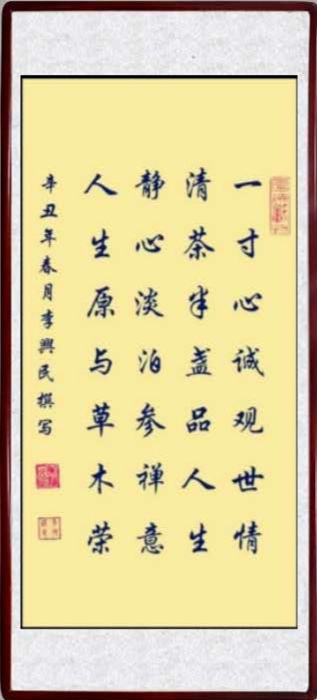 一寸心诚观世情
清茶半盏品人生
静心淡泊参禅意
人生原与草木荣
辛丑年春月李興民撰写